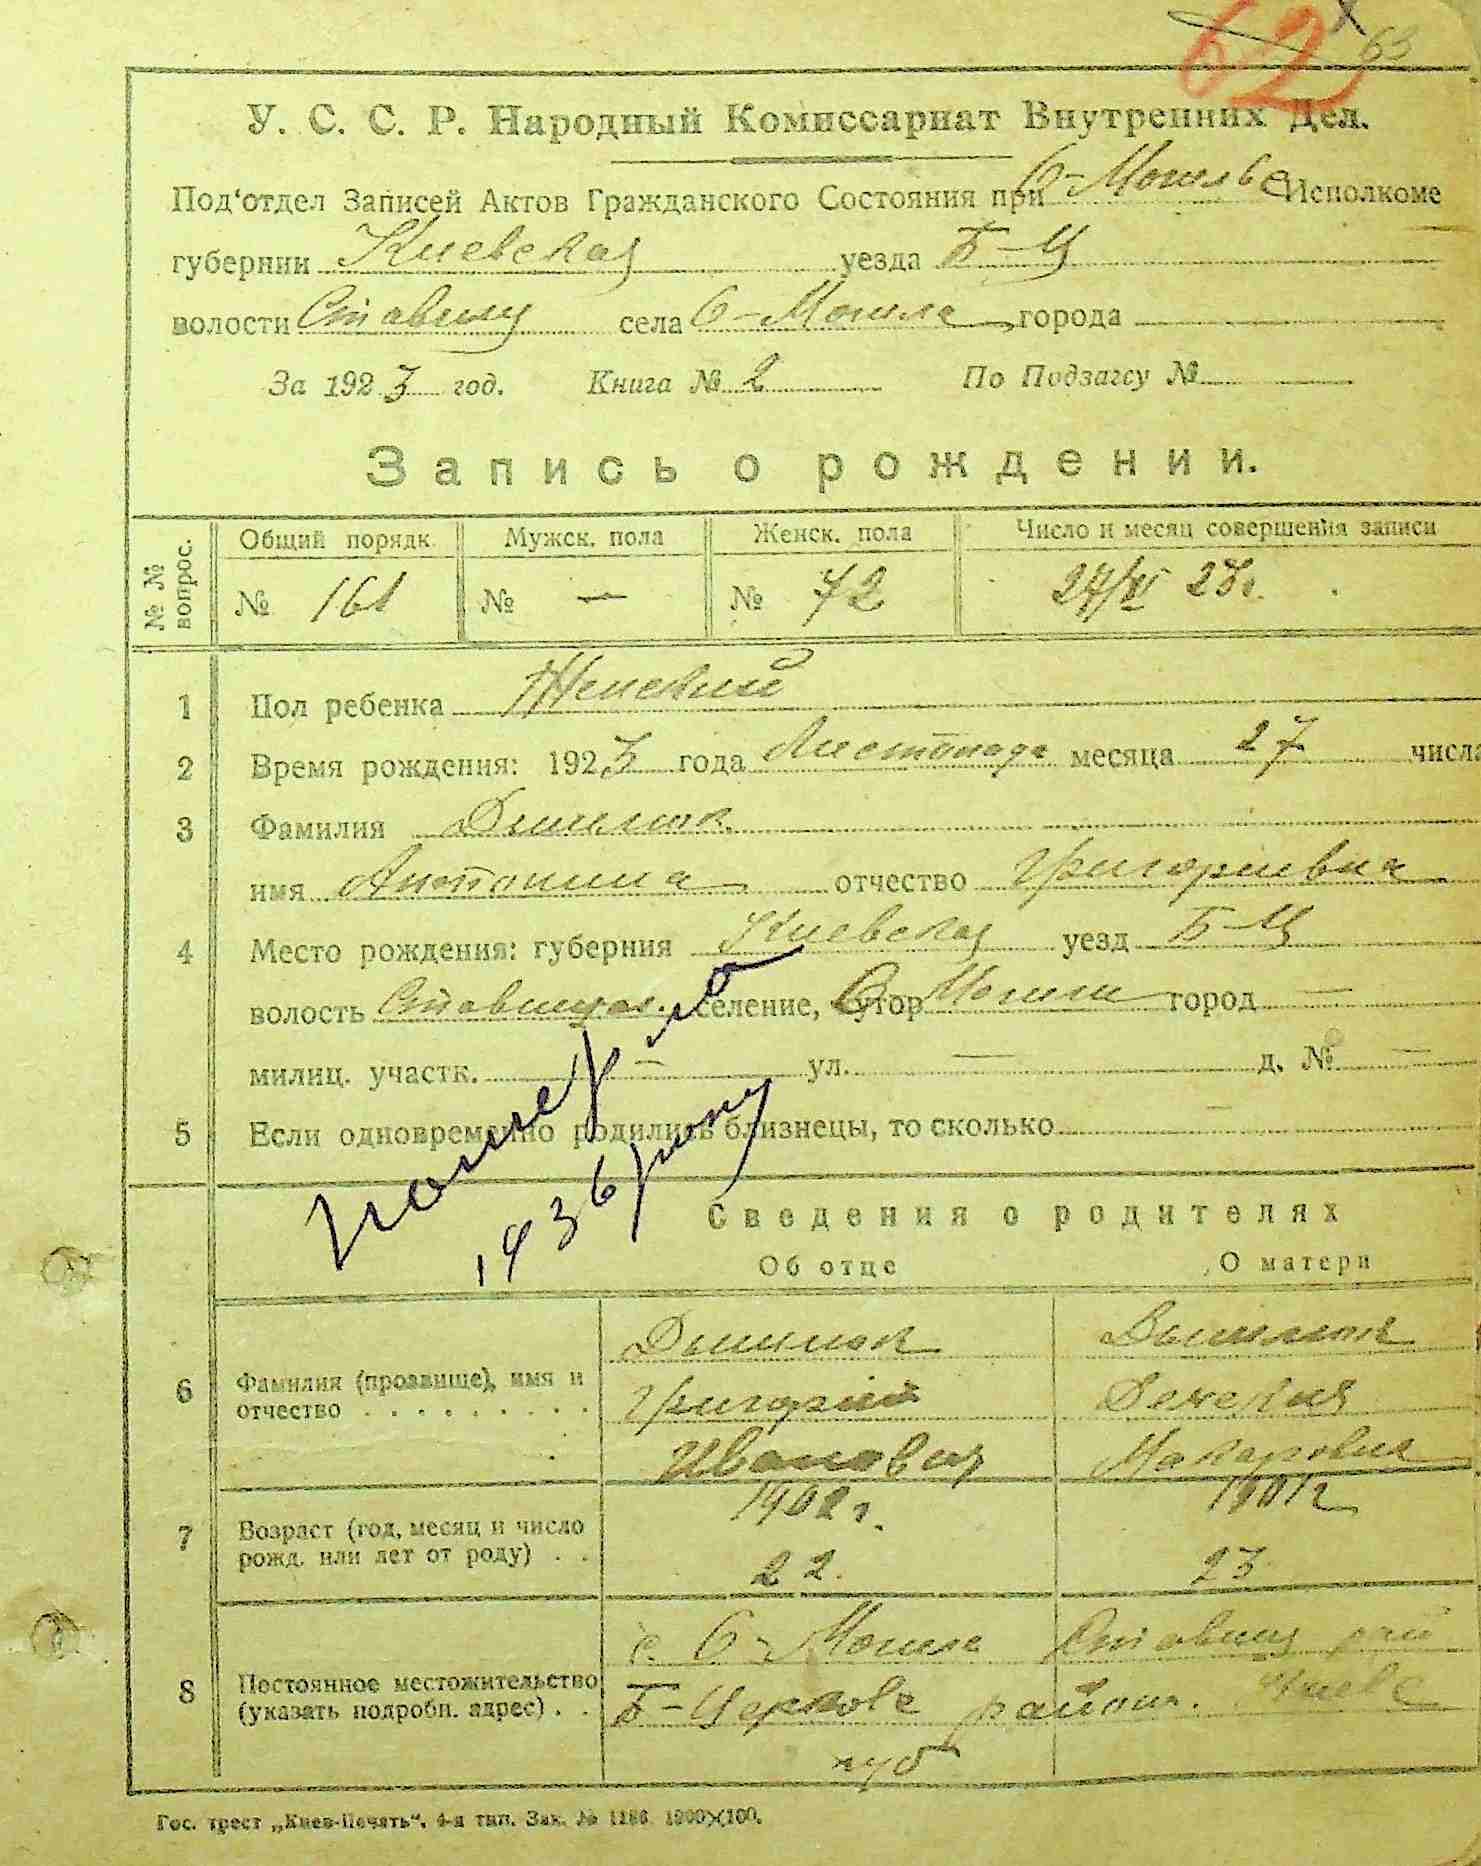 62 63
У. С. С. Р. Народный Комиссариат Внутренних Дел.
Под'отдел Записей Актов Гражданского Состояния при С-Могиль с Исполкоме
губернии Киевская уезда Б-Ц
волости Ставищ села С-Могила города
За 1923 год. Книга № 2 По Подзагсу №
Запись о рождении.
№ № вопрос. Общий порядк. Мужск. пола Женск. пола Число и месяц совершения записи
№ 161 № — № 72 27/XI 23г.
1 Пол ребенка Женский
2 Время рождения: 1923 года Листопада месяца 27 числа
3 Фамилия
имя Антонина отчество Григориевна
4 Место рождения: губерния Киевская уезд Б-Ц
волость Ставищая селение, хутор С Могили город —
милиц. участк. — ул. — д. № —
5 Если одновременно родились близнецы, то сколько —
померла
1936 року
Сведения о родителях
Об отце О матери
6 Фамилия (прозвище), имя и отчество
Григорий
Иванович Макаровна
7 Возраст (год, месяц и число рожд. или лет от роду) 1902г. 1901г
22. 23
8 Постоянное местожительство (указать подробн. адрес)
с. С-Могила Ставищ рай
Б-Церковс район. Киевс
губ
Гос. трест „Киев-Печать“, 4-я тип. Зак. № 1186 1000×100.